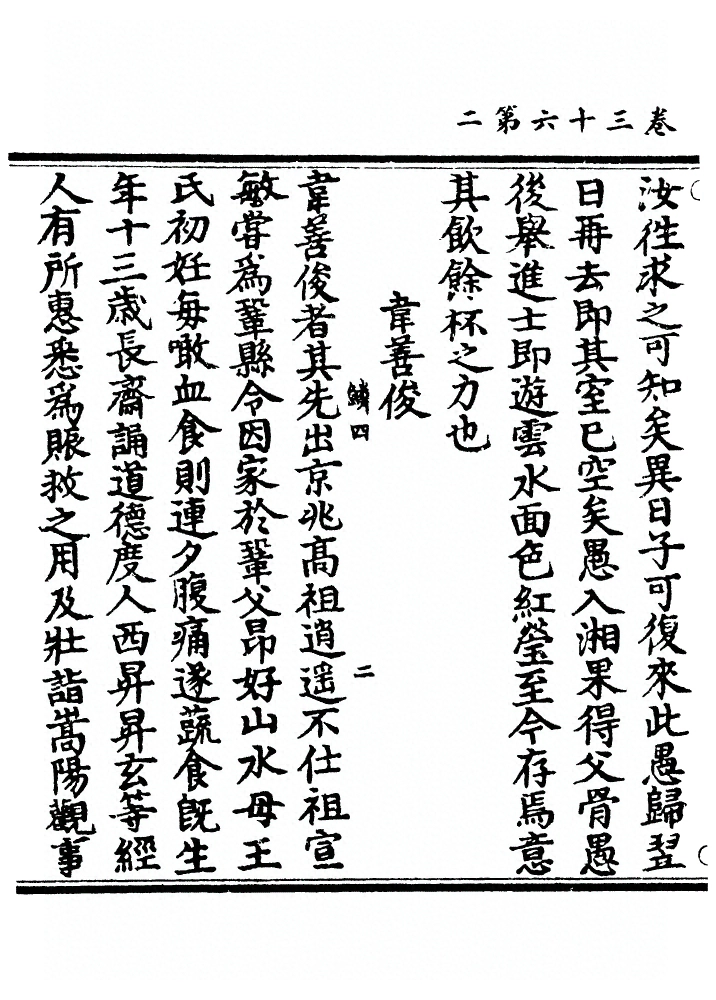 卷三十六第二
汝徃求之可知矣異日子可復來此愚歸翌
日再去即其室已空矣愚入湘果得父骨愚
後舉進士即遊雲水面色紅瑩至今存焉意
其飲餘杯之力也
韋善俊
鱗四
二
韋善俊者其先出京兆高祖逍遥不仕祖宣
敏嘗爲鞏縣令因家於鞏父昂好山水母王
氏初妊每噉血食則連夕腹痛遂蔬食旣生
年十三歲長齋誦道德度人西昇昇玄等經
人有所惠悉爲賑救之用及壯詣嵩陽觀事